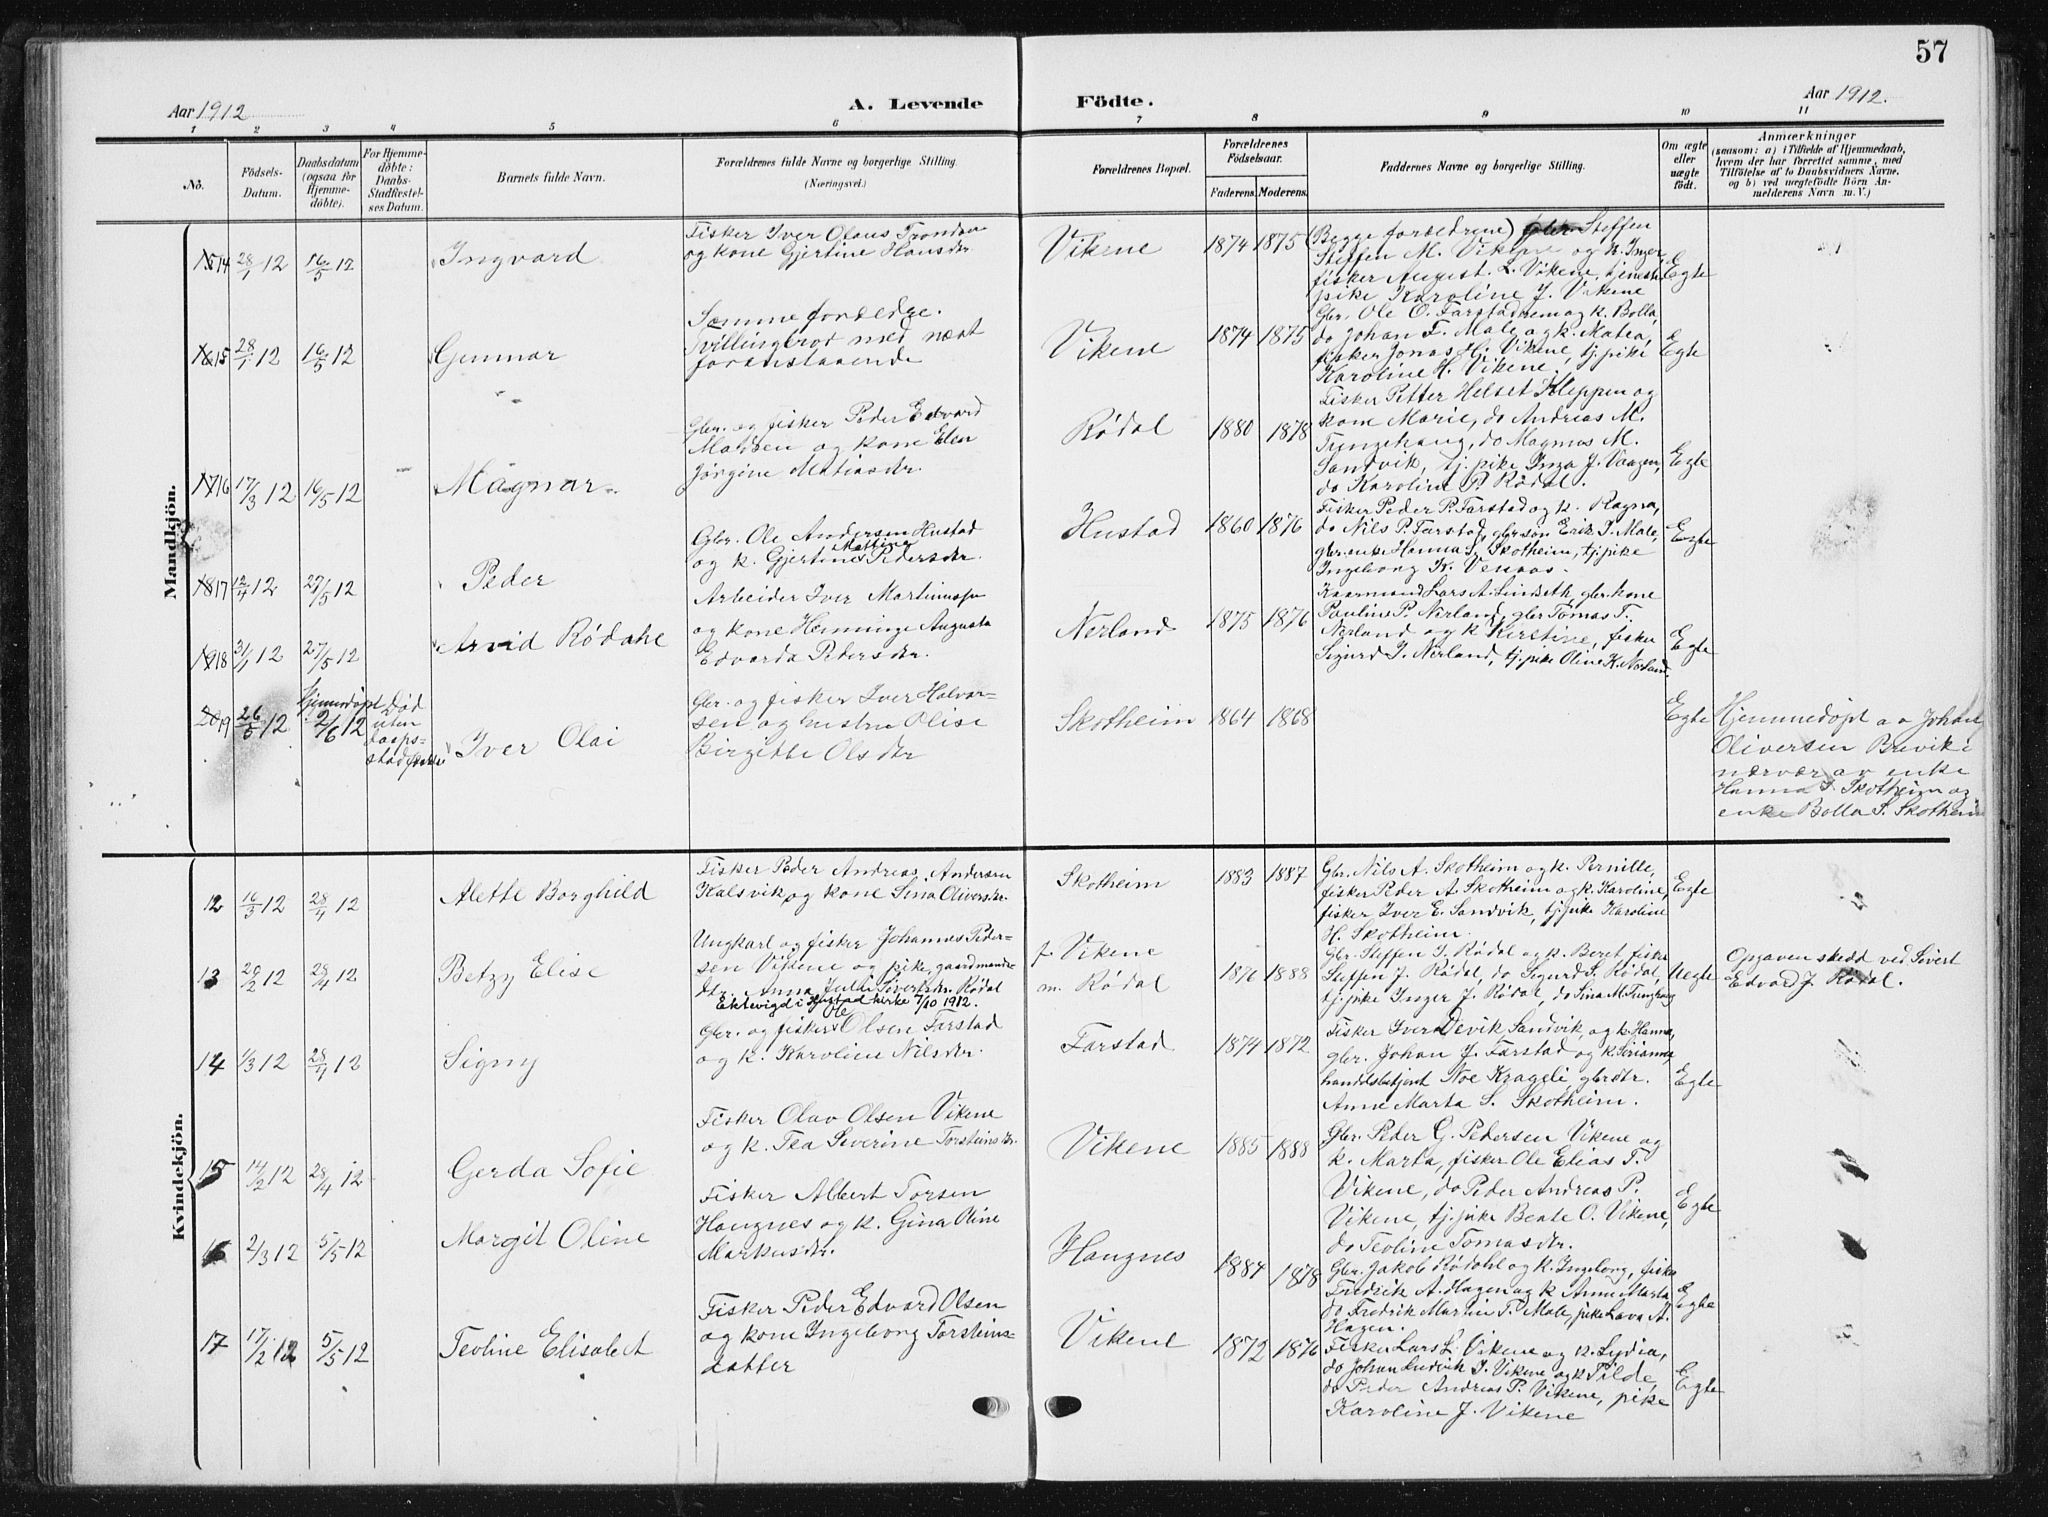 57
Aar 1912
A. Levende
Födte.
Aar 1912.
1 2 3 4 5 6 7 8 9 10 11
No.
Födsels-
Datum.
Daabsdatum
(ogsaa for
Hjemme-
döbte).
For Hjemme-
döbte:
Daabs-
Stadfæstel-
ses Datum.
Barnets fulde Navn.
Forældrenes fulde Navne og borgerlige Stilling.
(Næringsvei.)
Forældrenes Bopæl.
Forældrenes
Födselsaar.
Faderens. Moderens.
Faddernes Navne og borgerlige Stilling.
Om ægte
eller
uægte
födt.
Anmærkninger
(saasom: a) i Tilfælde af Hjemmedaab,
hvem der har forrettet samme, med
Tilföielse af to Daabsvidners Navne,
og b) ved uægtefödte Börn An-
melderens Navn m. V.)
Mandkjön.
15 14 28/1 12 16/5 12 Ingvard
Fisker Iver Olaus Trondsen
og kone Gjertine Hansdtr
Vikene 1874 1875
(Begge forældrene) Steffen
Steffen M. Vikene og k. Inger,
fisker August L. Vikene, tjeneste
pike Karoline J. Vikene
Egte
16 15 28/1 12 16/5 12 Gunnar
Samme forældre.
Tvillingbror med næst
foranstaaende
Vikene 1874 1875
Gbr. Ole O. Farstadrem og k. Bolla,
do Johan F. Male og k. Matea,
fisker Jonas Hj. Vikene, tj. pike
Karoline H. Vikene.
Egte
17 16 17/3 12 16/5 12 Magnar
Gbr. og fisker Peder Edvard
Madsen og kone Elen
Jørgine Matiasdtr.
Rødal 1880 1878
Fisker Petter Helset Kleppen og
kone Marie, do Andreas M.
Tungehaug, do Magnus M.
Sandvik, tj. pike Inga J. Vaagen,
do Karoline P. Rødal.
Egte
18 17 12/4 12 27/5 12 Peder
Gbr. Ole Andersen Hustad
og k. Gjertine Mattine Pedersdtr.
Hustad 1860 1876
Fisker Peder P. Farstad og k. Ragna,
do Nils P. Farstad, gbr.søn Erik I. Male,
gbr.enke Hanna I. Skotheim, tj. pike
Ingeborg K. Venaas.
Egte
19 18 31/1 12 27/5 12 Arvid Rødahl
Arbeider Iver Martinussen
og kone Henninge Augusta
Edvarda Pedersdtr.
Nerland 1875 1876
Kaarmand Lars A. Lindseth, gbr. kone
Pauline P. Nerland, gbr Tomas T.
Nerland og k Kirstine, fisker
Sigurd I. Nerland, tj. pike Oline K. Nerland.
Egte
20 19 26/5 12 Hjemmedøpt 2/6 12
Død
uten
daaps-
stadfæstelse
Iver Olai
Gbr. og fisker Iver Halvor-
sen og hustru Olise
Birgitte Olsdtr
Skotheim 1864 1868 Egte
Hjemmedøpt av Johan
Oliversen Brevik i
nærvær av enke
Hanna I. Skotheim og
enke Bolla S. Skotheim
Kvindekjön.
12 16/3 12 28/4 12 Alette Borghild
Fisker Peder Andreas Andersen
Kalsvik og kone Sina Oliversdtr.
Skotheim 1883 1887
Gbr. Nils A. Skotheim og k. Pernille,
fisker Peder A. Skotheim og k. Karoline,
fisker Iver E. Sandvik, tj. pike Karoline
H. Skotheim.
Egte
13 20/2 12 28/4 12 Betzy Elise
Ungkarl og fisker Johannes Peder-
sen Vikene og pike, gaardmands-
dtr. Anna Julie Sivertsdtr Rødal
Ektevigd i Hustad kirke 7/10 1912.
f. Vikene
m. Rødal
1876 1888
Gbr. Steffen I. Rødal og k. Beret, fisker
Steffen J. Rødal, do Sigurd S. Rødal,
tj. pike Inger J. Rødal, do Sina M. Tunghaug
Uegte
Opgaven skedd ved Sivert
Edvard J. Rødal.
14 1/3 12 28/4 12 Signy
Gbr. og fisker Ole Olsen Farstad
og k. Karoline Nilsdtr.
Farstad 1874 1872
Fisker Iver Devik Sandvik, og k. Hanna,
gbr. Johan J. Farstad og k. Sirianna
handelsbetjent Noe Krageli, gbrdtr.
Anne Marta S. Skotheim.
Egte
15 14/2 12 28/4 12 Gerda Sofie
Fisker Olav Olsen Vikene
og k. Tea Severine Torsteinsdtr.
Vikene 1885 1888
Gbr. Peder G. Pedersen Vikene og
k. Marta, fisker Ole Elias T.
Vikene, do Peder Andreas P.
Vikene, tj. pike Beate O. Vikene,
do Teoline Tomasdtr.
Egte
16 2/3 12 5/5 12 Margit Oline
Fisker Albert Torsen
Haugnes og k. Gina Oline
Markusdtr.
Haugnes 1884 1878
Gbr. Jakob Rødahl og k. Ingeborg, fisker
Fredrik A. Hagen og k Anne Marta
do Fredrik Martin T. Male, pike Lava A.
Hagen.
Egte
17 17/2 12 5/5 12 Teoline Elisabet
Fisker Peder Edvard Olsen
og kone Ingeborg Torsteins-
datter
Vikene 1872 1876
Fisker Lars L. Vikene og k. Lydia,
do Johan Ludvik I. Vikene og k Tilde,
do Peder Andreas P. Vikene, pike
Karoline J. Vikene
Egte